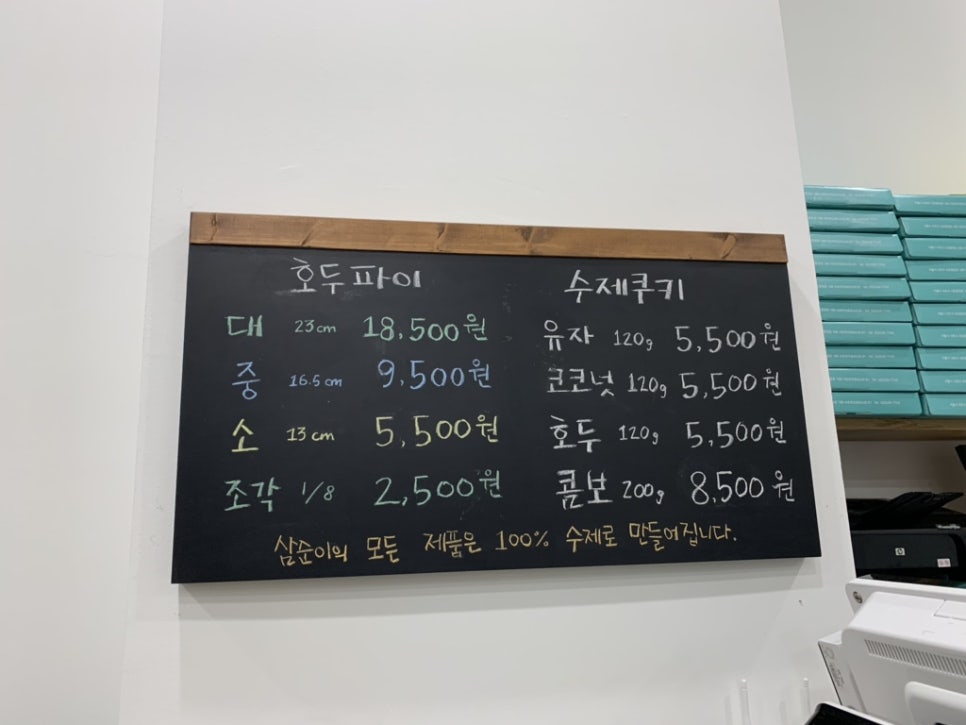 호두파이
대 23cm 18,500원
중 16.5cm 9,500원
소 13cm 5,500원
조각 1/8 2,500원
수제쿠키
유자 120g 5,500원
코코넛 120g 5,500원
호두 120g 5,500원
콤보 200g 8,500원
삼순이의 모든 제품은 100% 수제로 만들어집니다.
hp